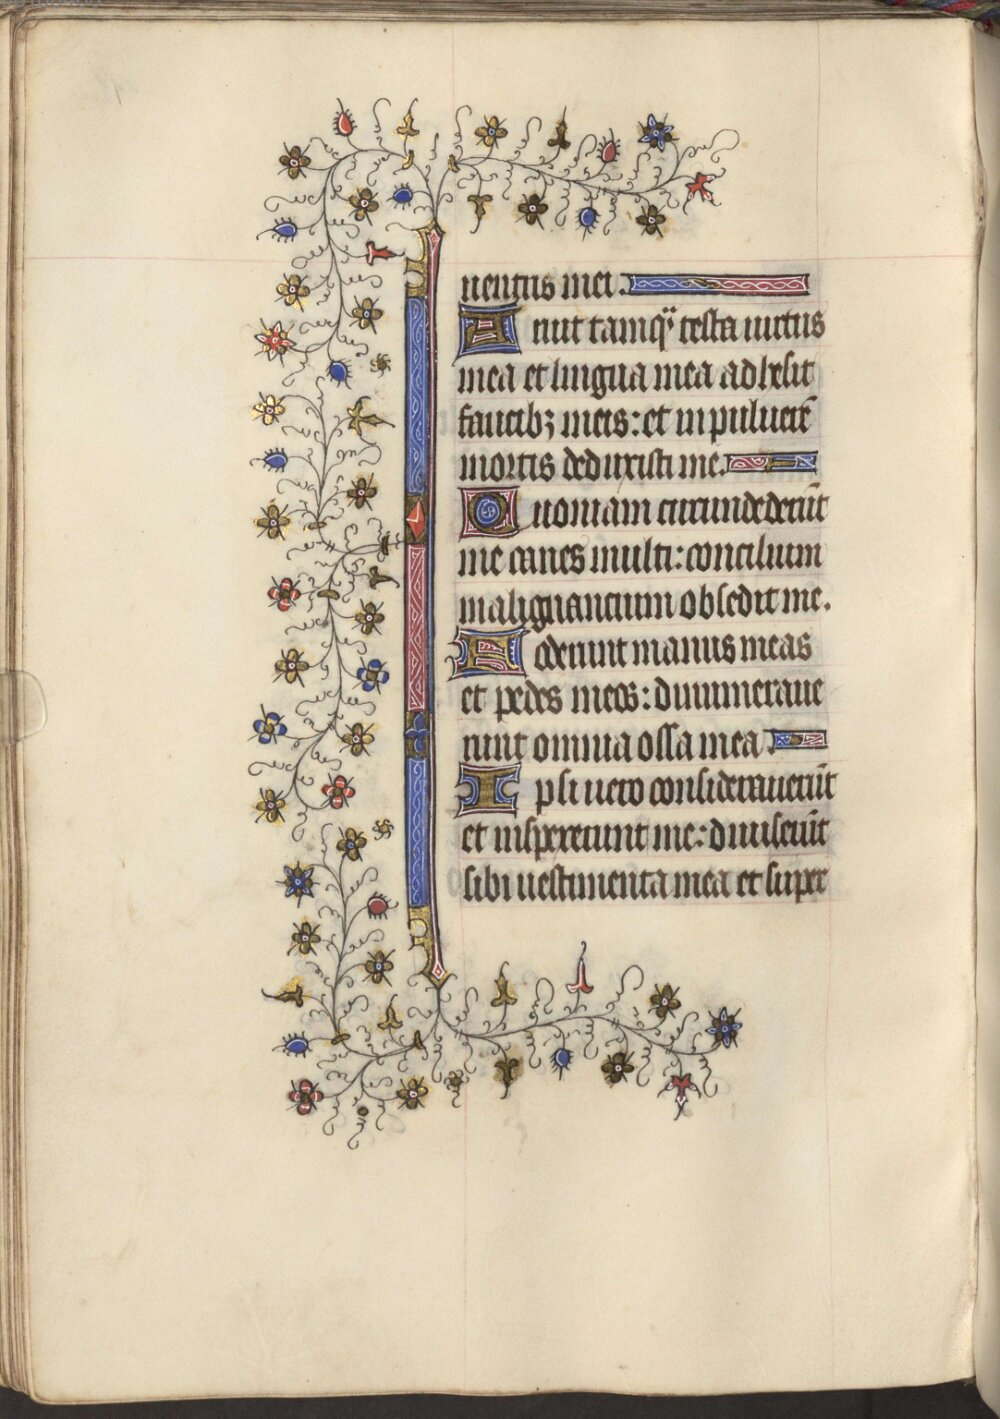 uentris mei.
Aruit tamqͣ testa uirtus
mea et lingua mea adhesit
faucibꝫ meis: et in puluerē
mortis deduxisti me.
Quoniam circumdederūt
me canes multi: concilium
malignantium obsedit me.
Foderunt manus meas
et pedes meos: dinumeraue
runt omnia ossa mea
Ipsi uero considerauerūt
et inspexerunt me: diuiserūt
sibi uestimenta mea et super